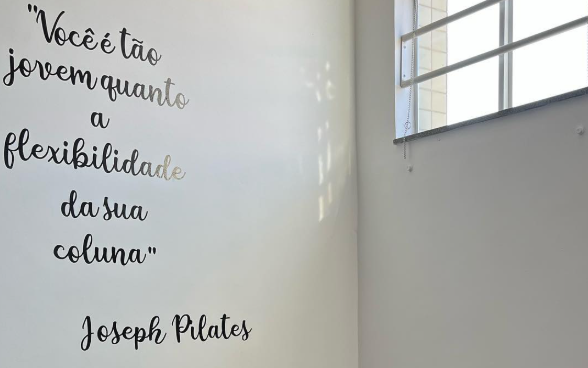 "Você é tão
jovem quanto
a
flexibilidade
da sua
coluna"
Joseph Pilates